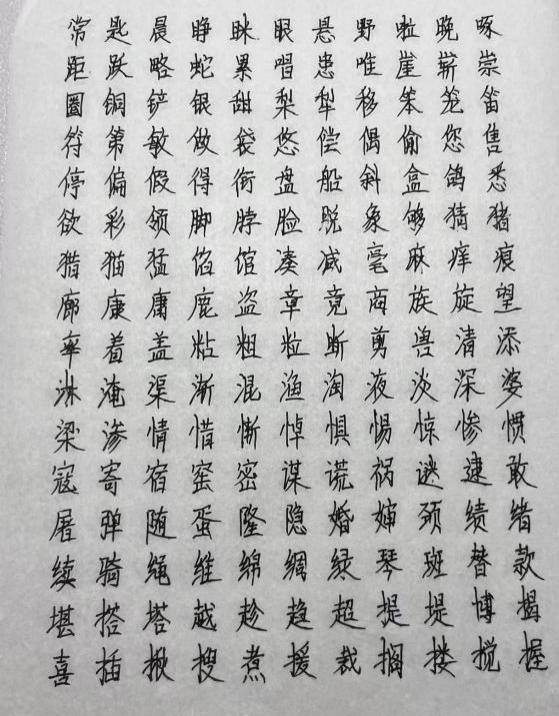 常匙晨睁眯眼悬野啦晚啄
距跃略蛇累唱患唯崖崭崇
圈铜铲银甜梨犁移笨笼笛
符第敏做袋悠偿偶偷您售
停偏假得衔盘船斜盒鸽悉
欲彩领脚脖脸脱象够猜猪
猎猫猛馅馆凑减毫麻痒痕
廊康庸鹿盗章竟商族旋望
率着盖粘粗粒断剪兽清添
淋淹渠渐混渔淘液淡深婆
梁渗情惜惭悼惧惕惊惨惯
寇寄宿窑密谋谎祸谜逮敢
屠弹随蛋隆隐婚婶颈绩绪
续骑绳维绵绸绿琴斑替款
堪搭塔越趁趋超提堤博揭
喜插揪搜煮援裁搁搂搅握